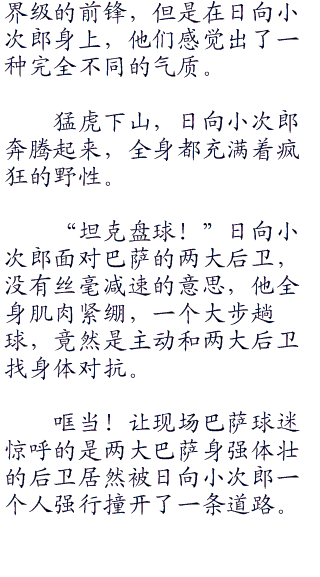 界级的前锋，但是在日向小
次郎身上，他们感觉出了一
种完全不同的气质。
猛虎下山，日向小次郎
奔腾起来，全身都充满着疯
狂的野性。
“坦克盘球！”日向小
次郎面对巴萨的两大后卫，
没有丝毫减速的意思，他全
身肌肉紧绷，一个大步趟
球，竟然是主动和两大后卫
找身体对抗。
哐当！让现场巴萨球迷
惊呼的是两大巴萨身强体壮
的后卫居然被日向小次郎一
个人强行撞开了一条道路。